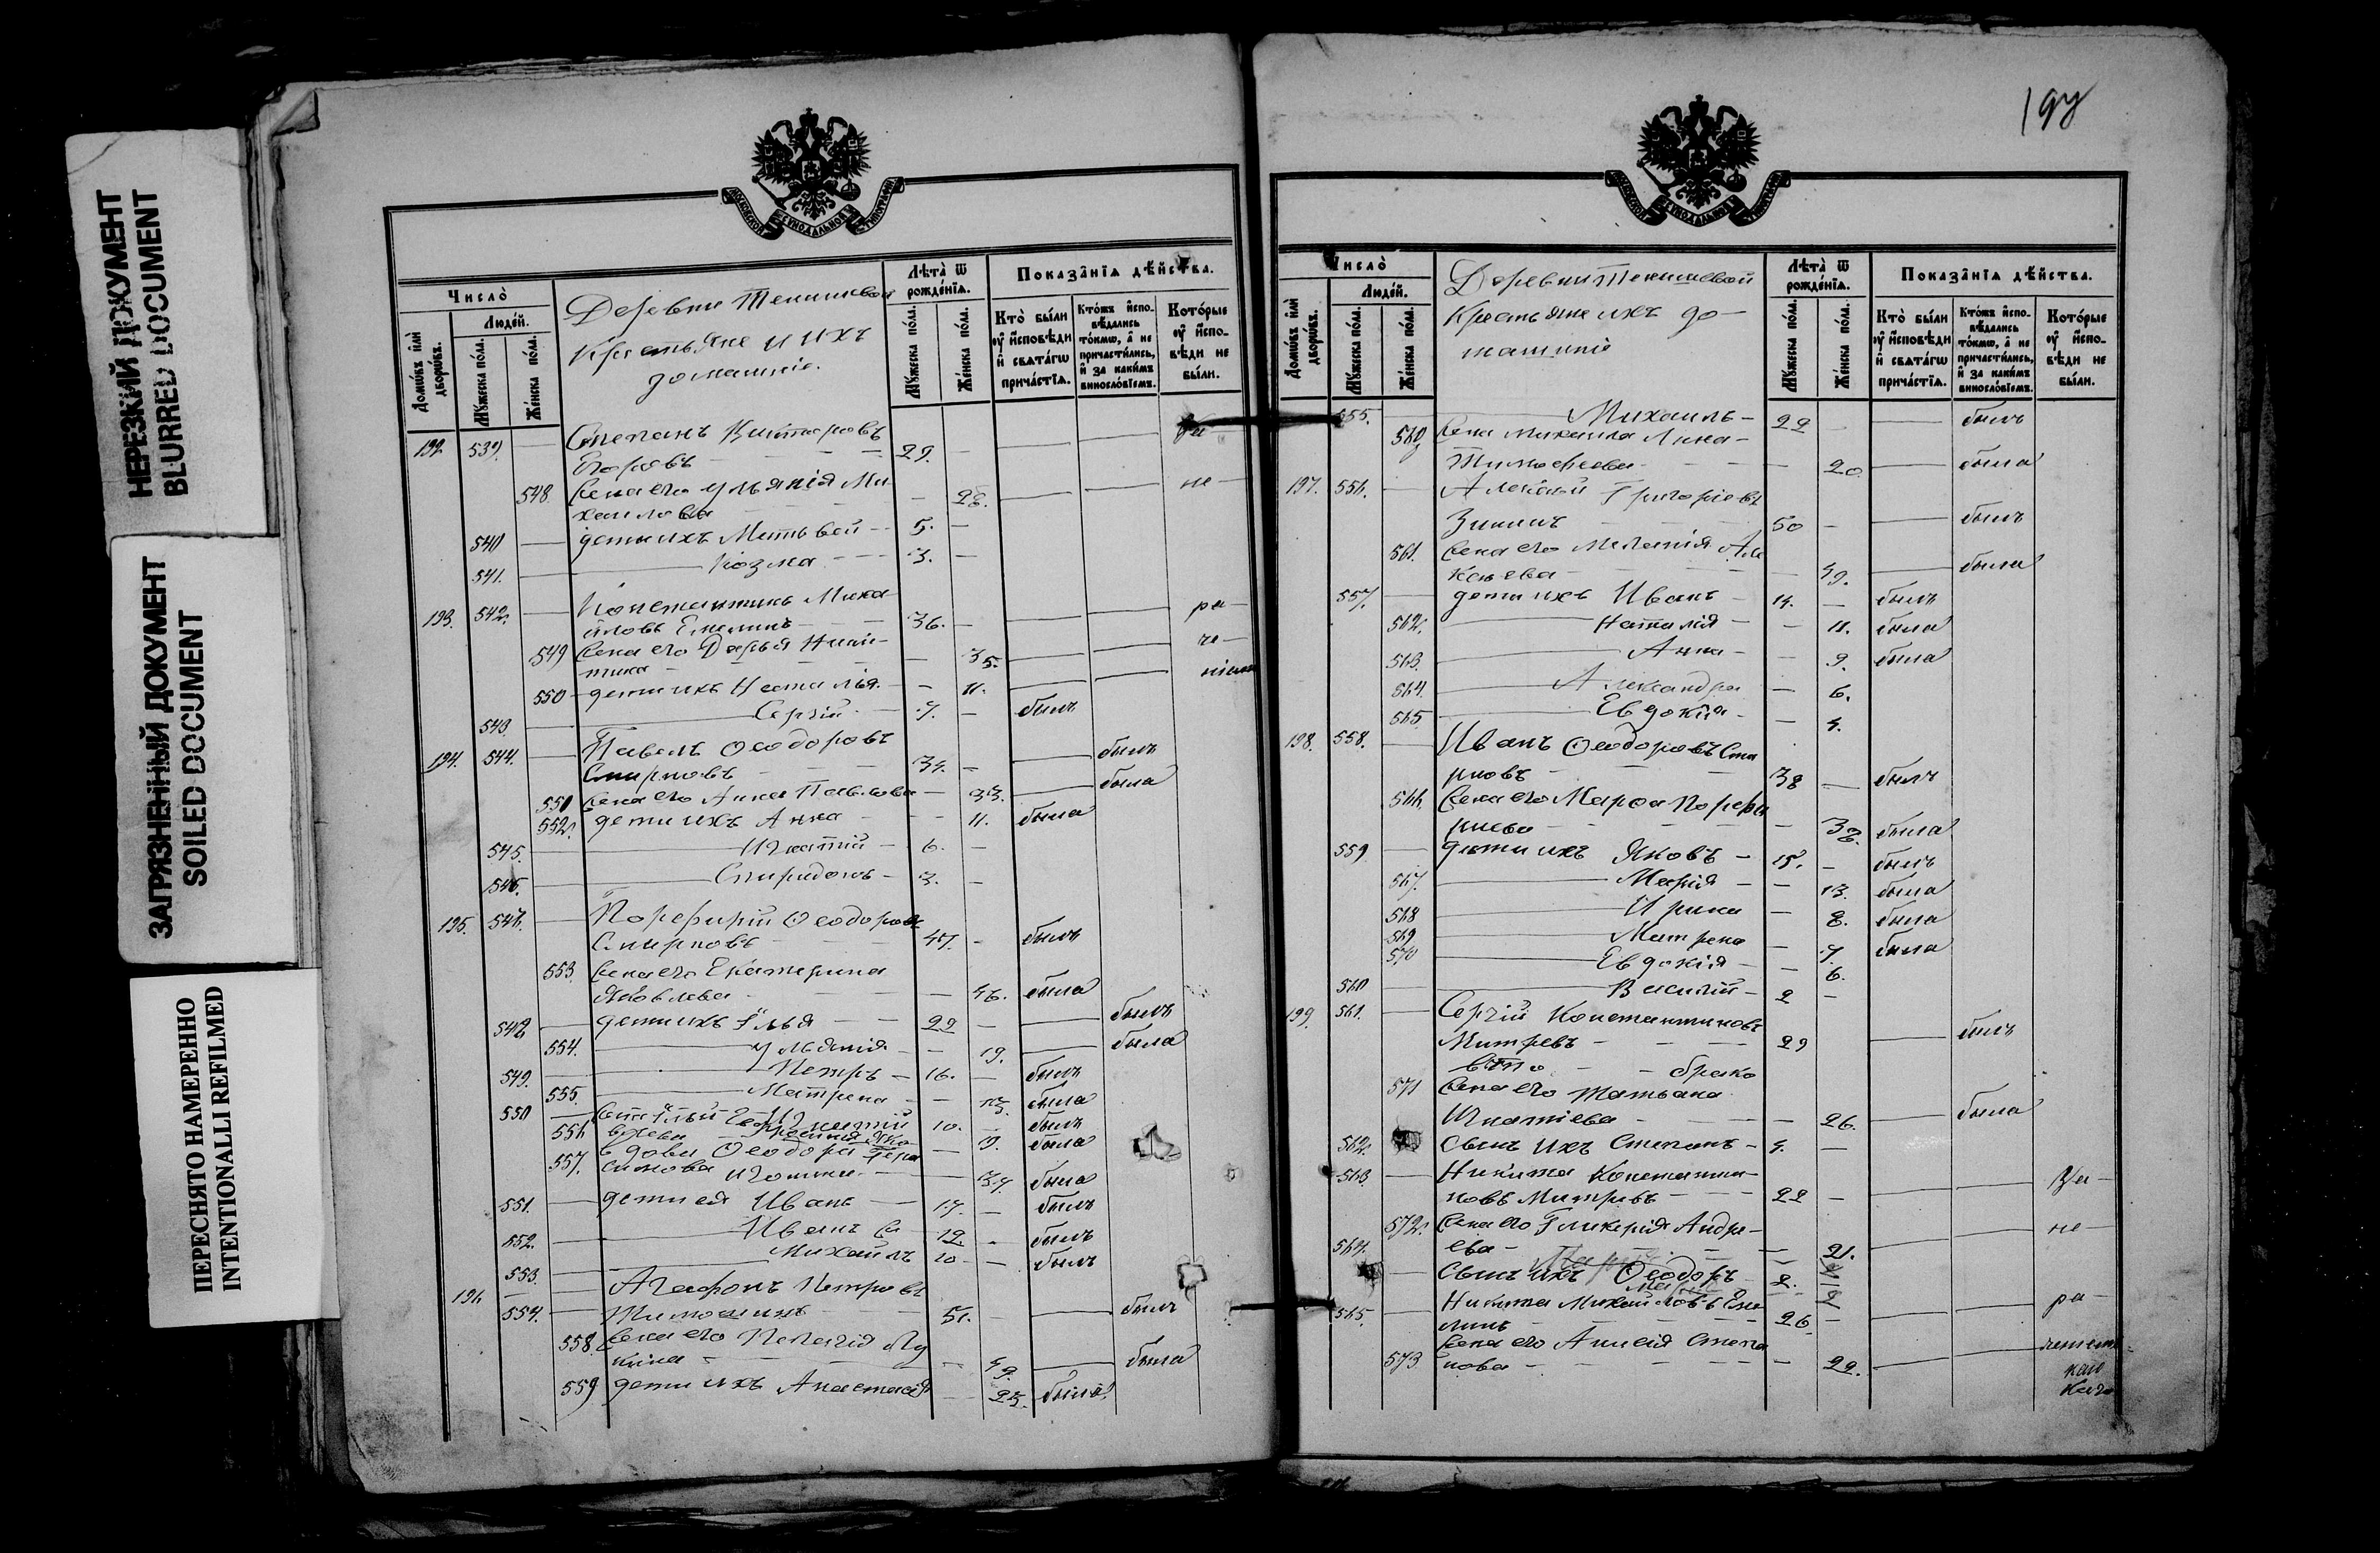 НЕРЕЗКИЙ ДОКУМЕНТ
BLURRED DOCUMENT
ЗАГРЯЗНЕННЫЙ ДОКУМЕНТ
SOILED DOCUMENT
ПЕРЕСНЯТО НАМЕРЕННО
INTENTIONALLI REFILMED
Число̀
Люде́й.
Домѡ́въ и҆лѝ дворѡ́въ.
Мꙋ́жеска по́ла.
Же́нска по́ла.
Деревни Тенишевой
Крестьяне и ихъ
домашніе.
Лѣ́та ѿ рожде́нїѧ.
Мꙋ́жеска по́ла.
Же́нска по́ла.
Показа́нїѧ дѣ́йства.
Кто̀ бы́ли оу҆ и҆́сповѣди и҆ свѧта́гѡ прича́стїѧ.
Кто́жъ и҆сповѣ́дались то́кмѡ, а҆ не причасти́лись, и҆ за каки́мъ виносло́вїемъ.
Кото́рые оу҆ и҆́сповѣди не бы́ли.
192. 539. Степанъ
Егоровъ 29.
548. Жена его Ульянія Ми
хаилова 28. не
540 дети ихъ Матвей 5.
541. Козма 3.
193. 542. Константинъ Миха
йловъ Емелинъ 36. ра
549 Жена его Дарья Ники
тина 35. че
550 дети ихъ Наталья 11.
543. Сергій 7. былъ
194. 544. Павелъ Ѳеодоровъ
Смирновъ 34. былъ
551 Жена его Анна Павлова 33. была
552. дети ихъ Анна 11. была
545. Игнатій 6.
546. Спиридонъ 3.
195. 547. Порфирій Ѳеодоровъ
Смирновъ 47. былъ
553. Жена его Екатерина
Яковлева 46. была
548 дети ихъ Илья 22 былъ
554. Ульянія 19. была
549. Петръ 16. былъ
555. Матрена 13. была
550 Игнатій 10. былъ
556 9. была
557. вдова Ѳеодора Гера
симова 37. была
551. дети ея Иванъ 17. былъ
552. Иванъ 12. былъ
553. Михаилъ 10 былъ
196 Агафонъ Петровъ
554. Тимошинъ 51. былъ
558. Жена его Пелагія Лу
кина 49. была
559 дети ихъ Анастасія 23. была
197
Число̀
Люде́й.
Домѡ́въ и҆лѝ дворѡ́въ.
Мꙋ́жеска по́ла.
Же́нска по́ла.
Деревни Тенишевой
Крестьяне ихъ до-
машніе
Лѣ́та ѿ рожде́нїѧ.
Мꙋ́жеска по́ла.
Же́нска по́ла.
Показа́нїѧ дѣ́йства.
Кто̀ бы́ли оу҆ и҆́сповѣди и҆ свѧта́гѡ прича́стїѧ.
Кто́жъ и҆сповѣ́дались то́кмѡ, а҆ не причасти́лись, и҆ за каки́мъ виносло́вїемъ.
Кото́рые оу҆ и҆́сповѣди не бы́ли.
555. Михаилъ 22 былъ
560 Жена Михаила Анна
Тимофеева 20 была
197. 556. Алексій Григорьевъ
Зиминъ 50 былъ
561. Жена его Меланія Але
ксеева 49. была
557. дети ихъ Иванъ 14. былъ
562. Наталія 11. была
563. Анна 9. была
564. Александра 6.
565 Евдокія 4.
198. 558. Иванъ Ѳеодоровъ Сми
рновъ 38 былъ
566. Жена его Марѳа Порфи
рьева 38. была
559 дети ихъ Яковъ 15. былъ
567. Марія 13. была
568 Ирина 8. была
569 Матрена 7. была
570 Евдокія 6.
560 Василій 2
199. 561. Сергій Константиновъ
Митревъ 29 былъ
брако
571 Жена его Татьяна
Игнатіева 26. была
562. Сынъ ихъ Степанъ 4.
563. Никита Константи
новъ Митревъ 22
572. Жена его Гликерія Андре
ева 21. не
564. Сынъ ихъ Ѳеодоръ 2.
565. Никита Михайловъ Еме
линъ 26 ра
573 Жена его Анисія Степа
нова 22.